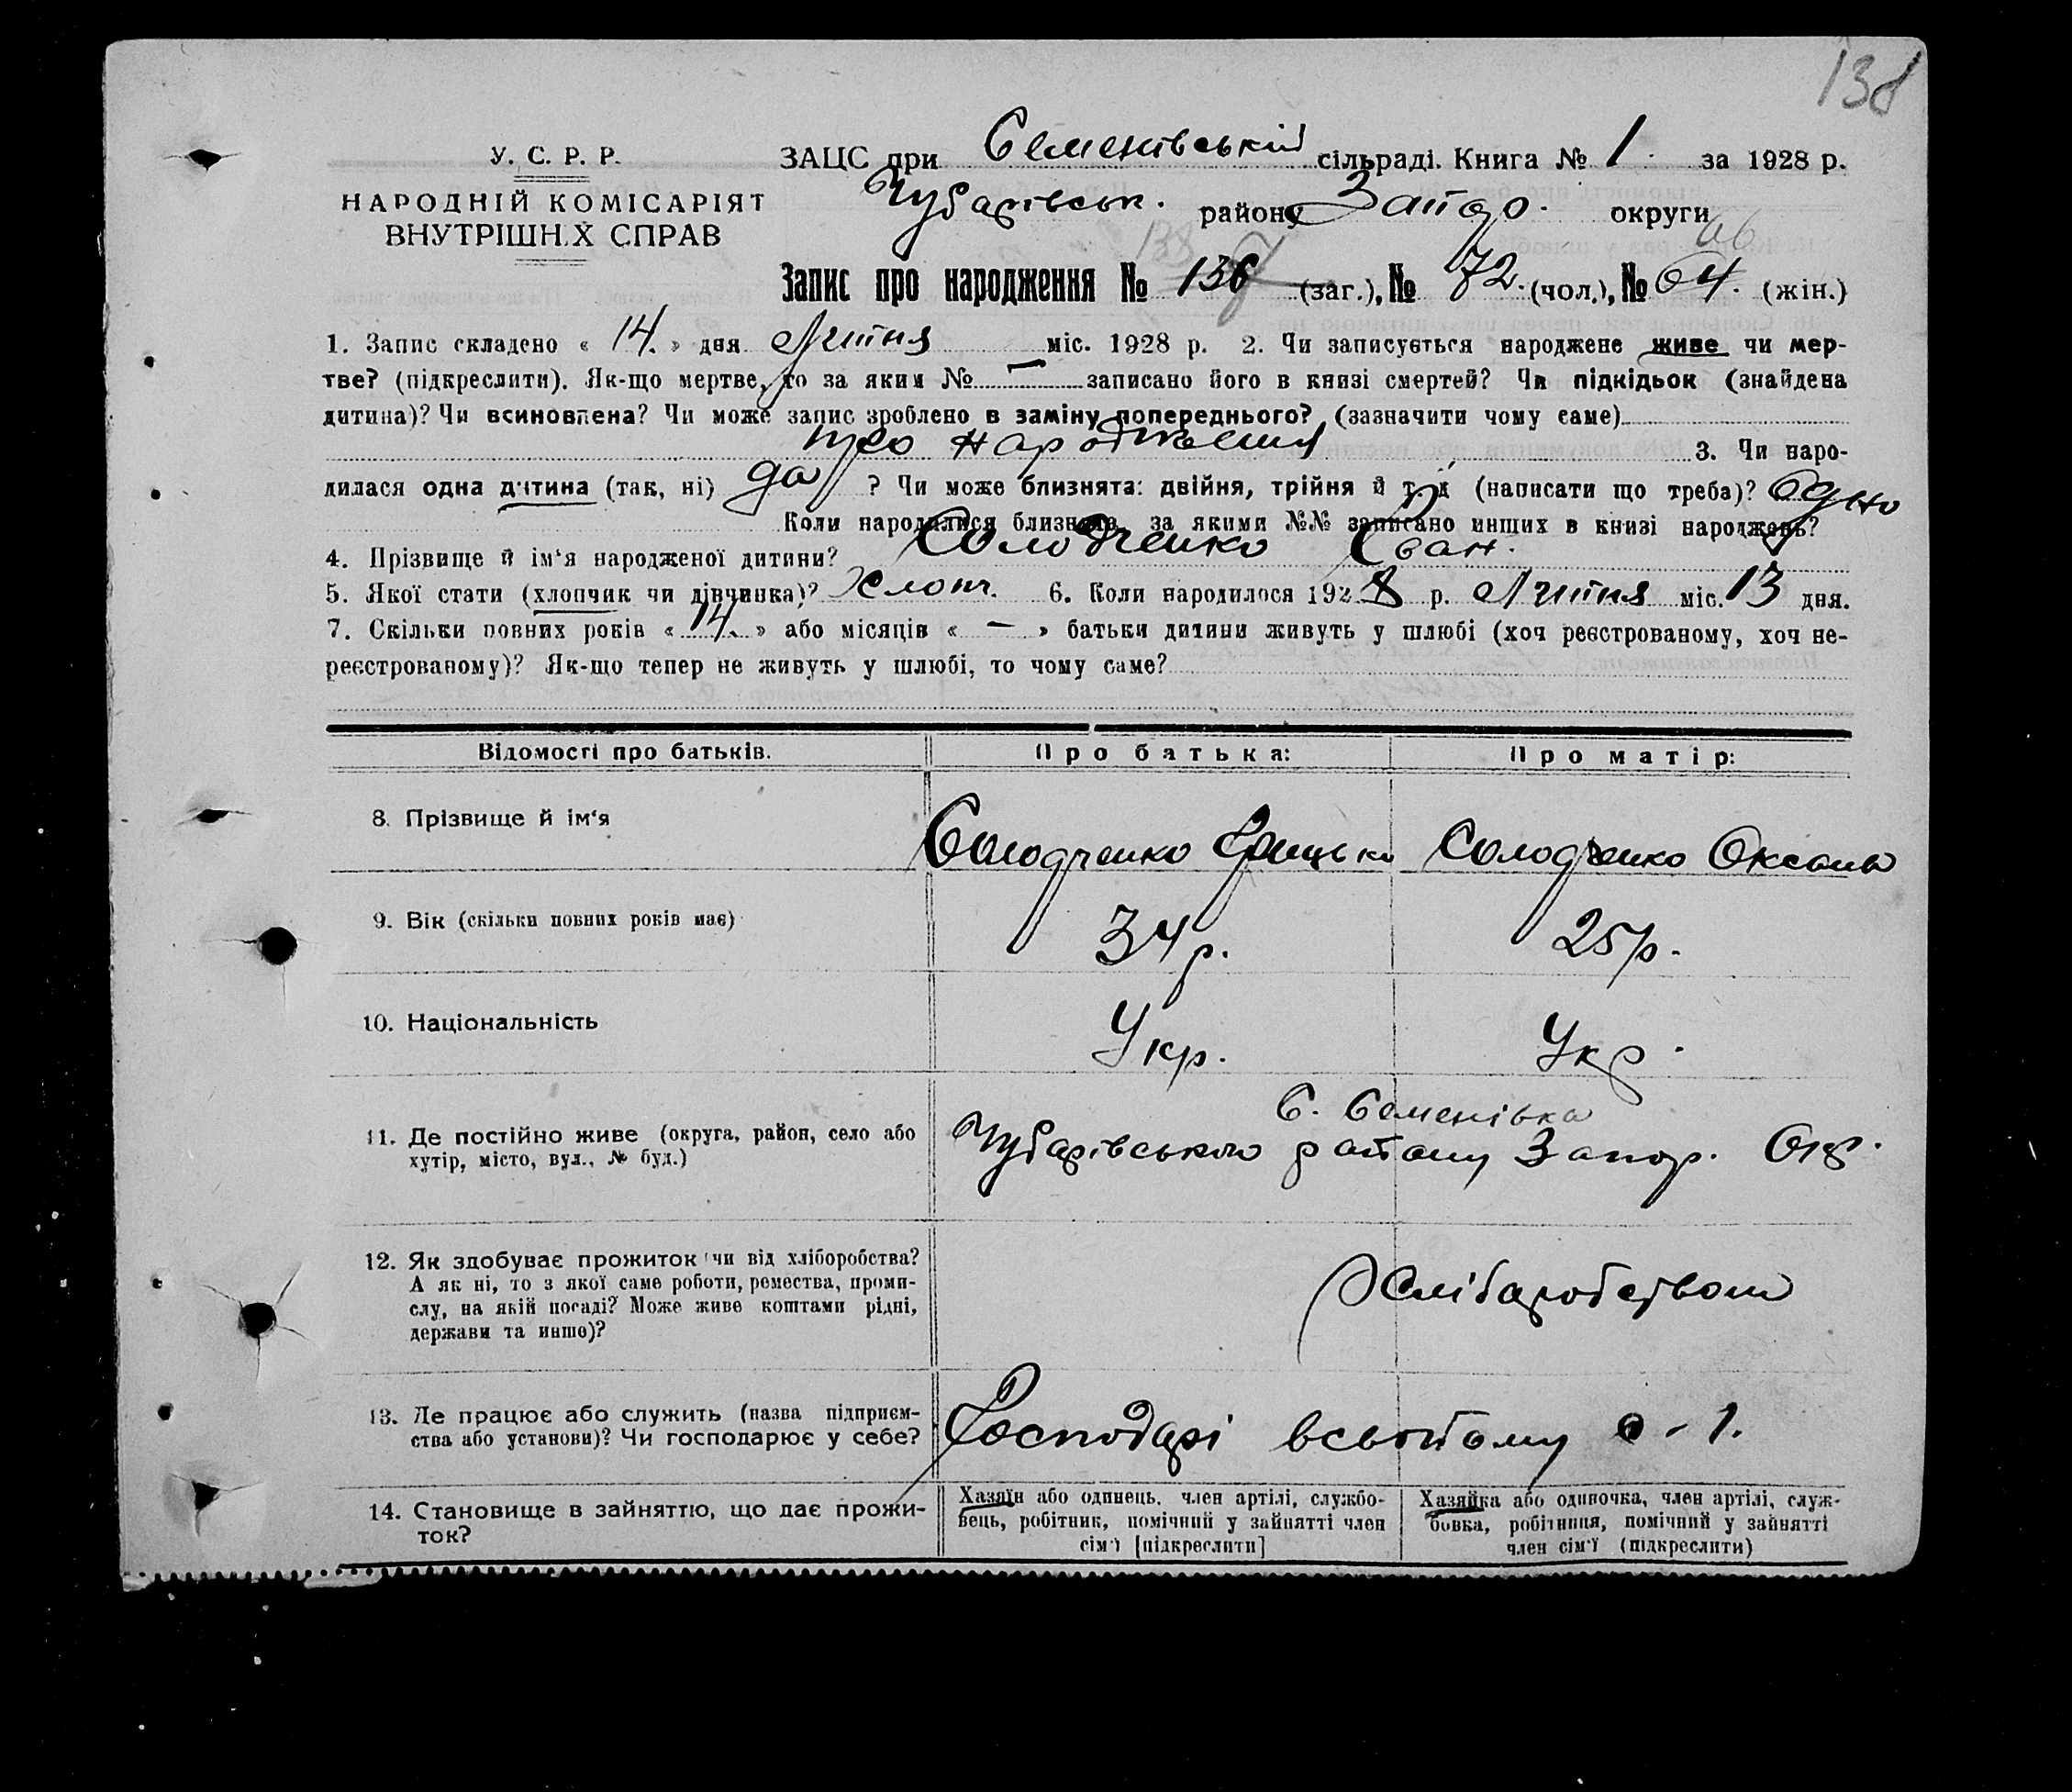 138
У. С. Р. Р.
НАРОДНІЙ КОМІСАРІЯТ
ВНУТРІШНІХ СПРАВ
ЗАЦС при Семенівській сільраді. Книга № 1. за 1928 р.
Чубарівськ. району Запор. округи
138 66
Запис про народження № 136 (заг.), № 72. (чол.), № 64. (жін.)
1. Запис складено « 14. » дня Липня міс. 1928 р. 2. Чи записується народжене живе чи мер-
тве? (підкреслити). Як-що мертве, то за яким № — записано його в книзі смертей? Чи підкідьок (знайдена
дитина)? Чи всиновлена? Чи може запис зроблено в заміну попереднього? (зазначити чому саме)
про народження 3. Чи наро-
дилася одна дитина (так, ні) да ? Чи може близнята: двійня, трійня й т. д (написати що треба)? одно
Коли народилися близнята, за якими №№ записано инших в книзі народжень?
4. Прізвище й ім‘я народженої дитини? Солодченко Іван.
5. Якої стати (хлопчик чи дівчинка)? Хлопч. 6. Коли народилося 1928 р. Липня міс. 13 дня.
7. Скільки повних років « 14. » або місяців « — » батьки дитини живуть у шлюбі (хоч реєстрованому, хоч не-
реєстрованому)? Як-що тепер не живуть у шлюбі, то чому саме?
Відомості про батьків. Про батька: Про матір:
8. Прізвище й ім‘я Солодченко Грицько Солодченко Оксана
9. Вік (скільки повних років має) 34 р. 25 р.
10. Національність Укр. Укр.
С. Семенівка
11. Де постійно живе (округа, район, село або Чубарівського району Запор. Окр.
хутір, місто, вул., № буд.)
12. Як здобуває прожиток чи від хліборобства?
А як ні, то з якої саме роботи, ремества, проми- Хліборобством
слу, на якій посаді? Може живе коштами рідні,
держави та инше)?
13. Де працює або служить (назва підприєм-
ства або установи)? Чи господарює у себе? Господарі всьому - 1.
14. Становище в зайняттю, що дає прожи-
ток?
Хазяїн або одинець, член артілі, службо-
вець, робітник, помічний у зайнятті член
сім‘ї [підкреслити]
Хазяйка або одиночка, член артілі, служ-
бовка, робітниця, помічний у зайнятті
член сім‘ї (підкреслити)